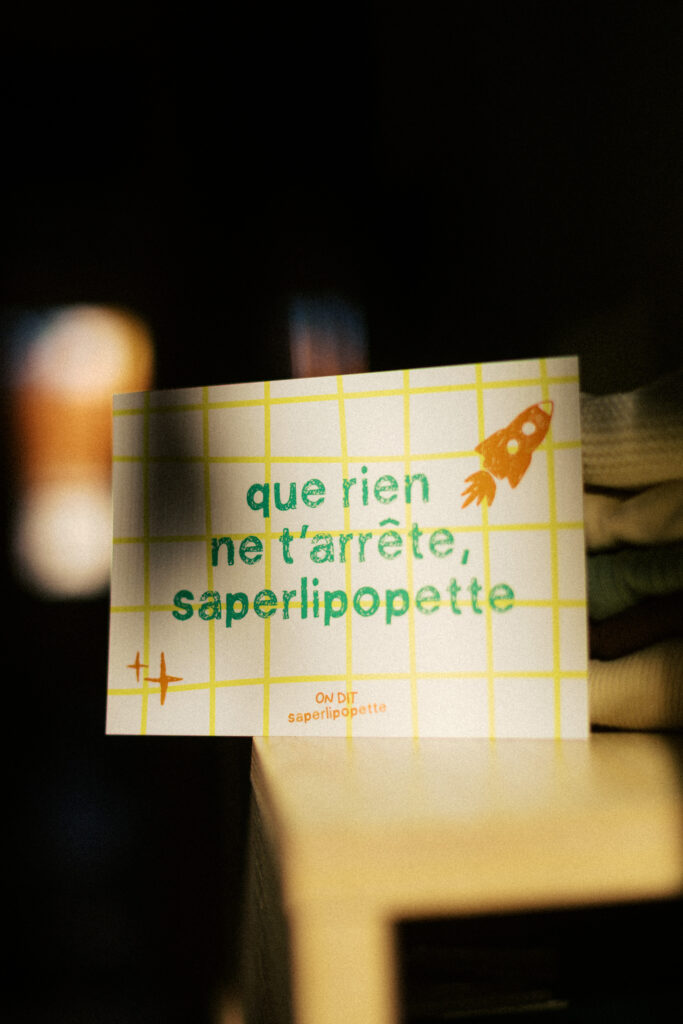 que rien
ne t'arrête,
saperlipopette
ON DIT
saperlipopette